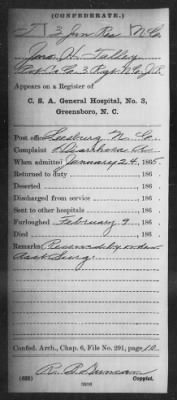 (CONFEDERATE.)
T 3 Jun Res N.C.
Jno. H. Talley
Co. G. 3 Regt N.C. J.R.
Appears on a Register of
C. S. A. General Hospital, No. 3,
Greensboro, N. C.
Post office Leasburg N. C.
Complaint Diarrhoea
When admitted January 24, 186 5.
Returned to duty , 186 .
Deserted , 186 .
Discharged from service , 186 .
Sent to other hospitals , 186 .
Furloughed February 9 , 186 .
Died , 186 .
Remarks: by order
Asst Surg.
Confed. Arch., Chap. 6, File No. 291, page 10
R. B. Duncan
(635) Copyist.